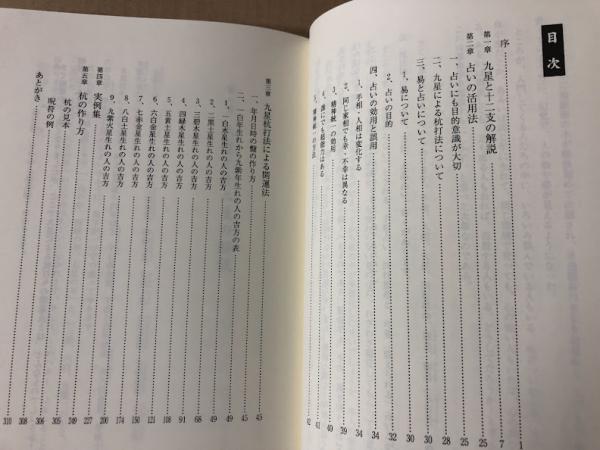 目次
序 1
第一章 九星と十二支の解説 7
第二章 占いの活用法 25
一、占いにも目的意識が大切 25
二、九星による杭打法について 28
三、易と占いについて 30
1、易について 30
2、占いの目的 32
四、占いの効用と誤用 34
1、手相・人相は変化する 34
2、同じ家相でも幸・不幸は異なる 39
3、精神統一の効用 40
4、誰にでも超能力はある 41
5、精神統一の方法 42
第三章 九星杭打法による開運法 43
一、年月日時の盤の作り方 43
二、一白年生れから九紫年生れの人の吉方の表 45
1、一白水星生れの人の吉方 49
2、二黒土星生れの人の吉方 68
3、三碧木星生れの人の吉方 91
4、四緑木星生れの人の吉方 108
5、五黄土星生れの人の吉方 121
6、六白金星生れの人の吉方 150
7、七赤金星生れの人の吉方 174
8、八白土星生れの人の吉方 200
9、九紫火星生れの人の吉方 227
第四章 実例集 249
第五章 杭の作り方 305
杭の見本 306
呪符の例 308
あとがき 310